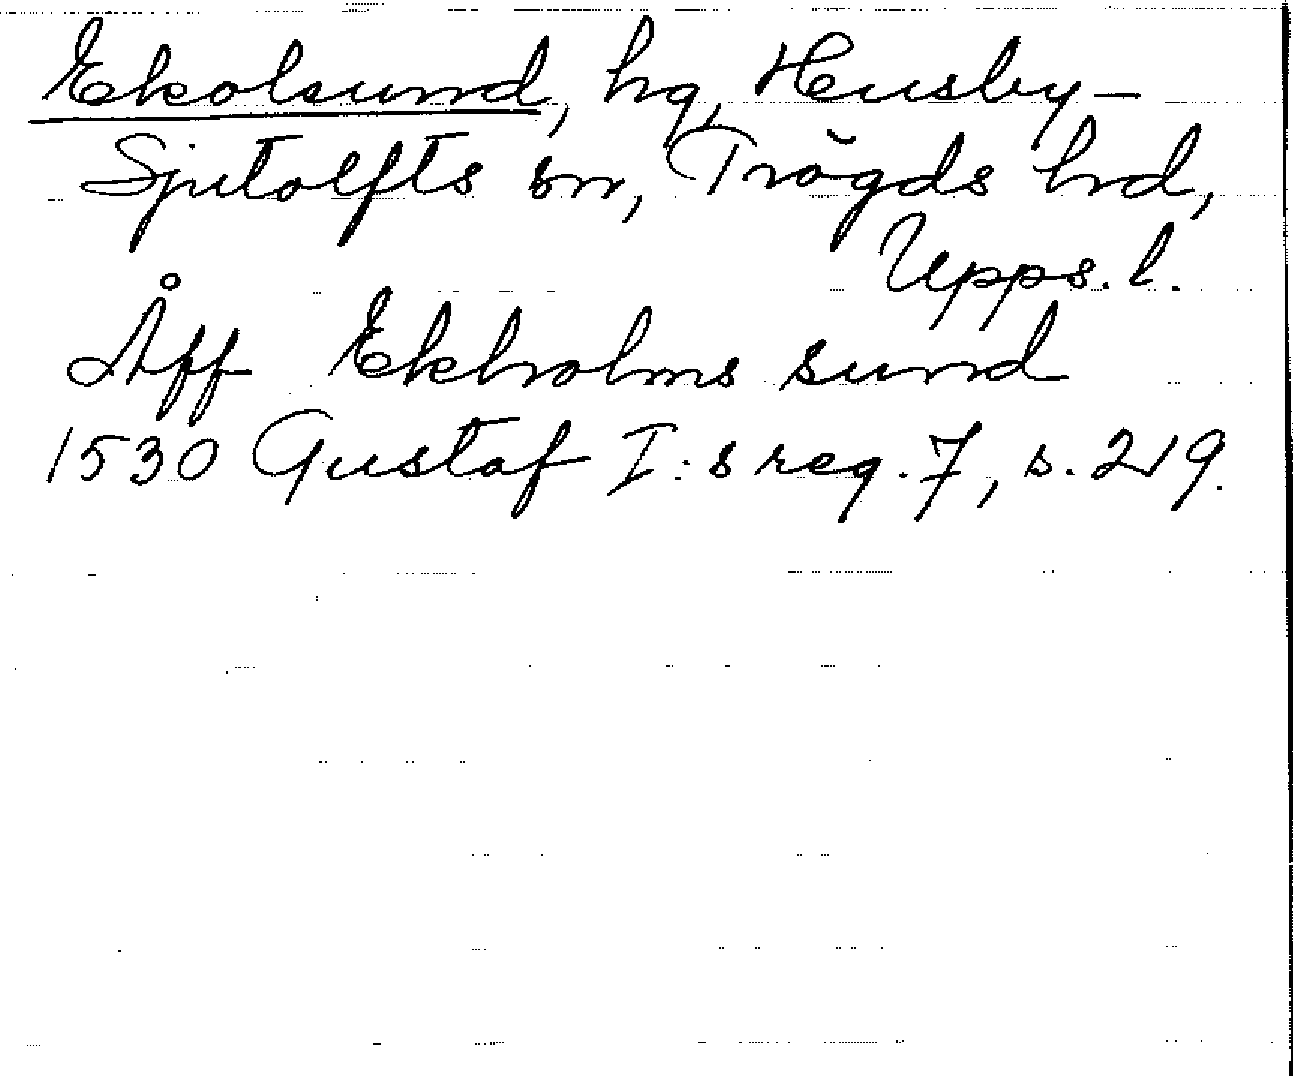 Ekolsund, hg, Husby-
Sjutolfts sn, Trögds hd,
Upps. l.
Åff Ekholms sund
1530 Gustaf I:s reg. 7, s. 219.